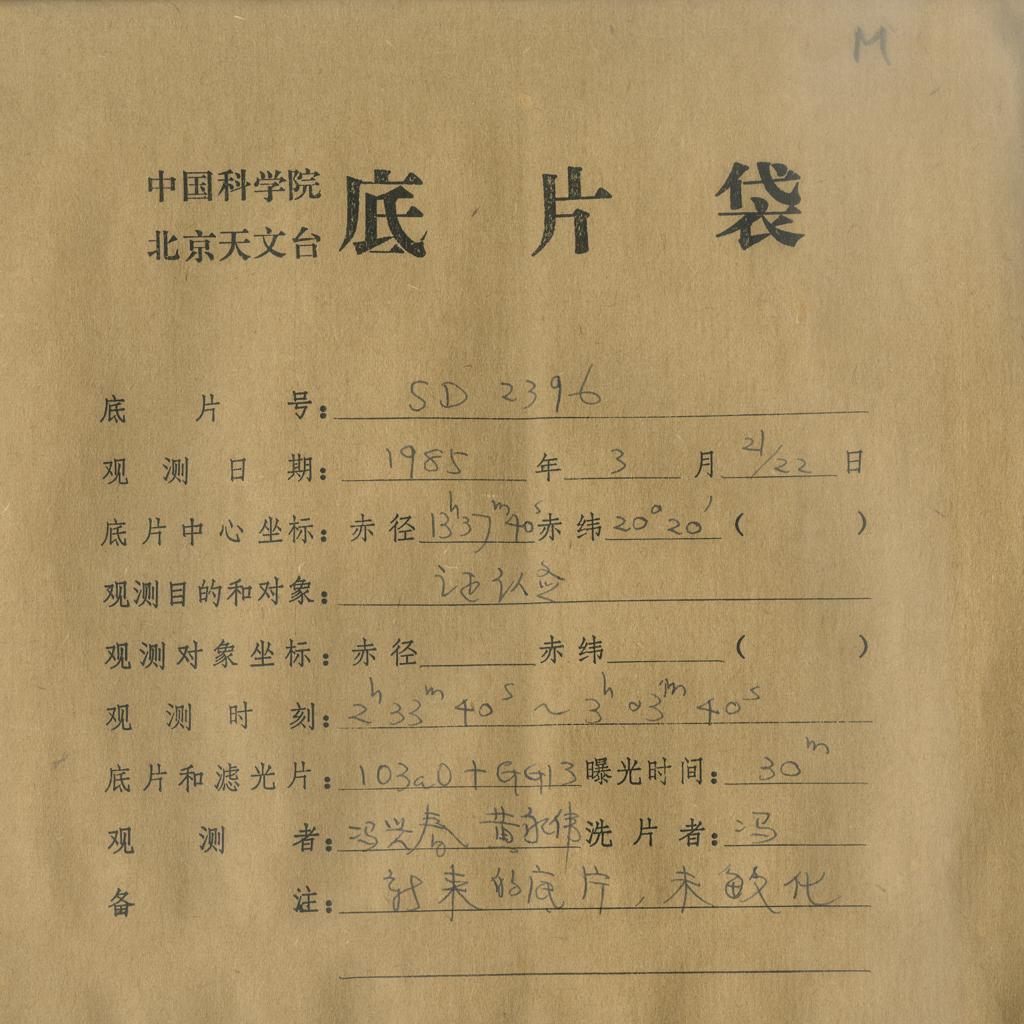 M
中国科学院
北京天文台
底片袋
底片号： SD 2396
观测日期： 1985 年 3 月 21/22 日
底片中心坐标：赤径 13h37m40s 赤纬 20°20′ （ ）
观测目的和对象： 证认
观测对象坐标：赤径 赤纬 （ ）
观测时刻： 2h33m40s ~ 3h03m40s
底片和滤光片： 103aO+GG13 曝光时间： 30m
观测者： 冯兴春 黄永伟 洗片者： 冯
备注： 新来的底片，未敏化